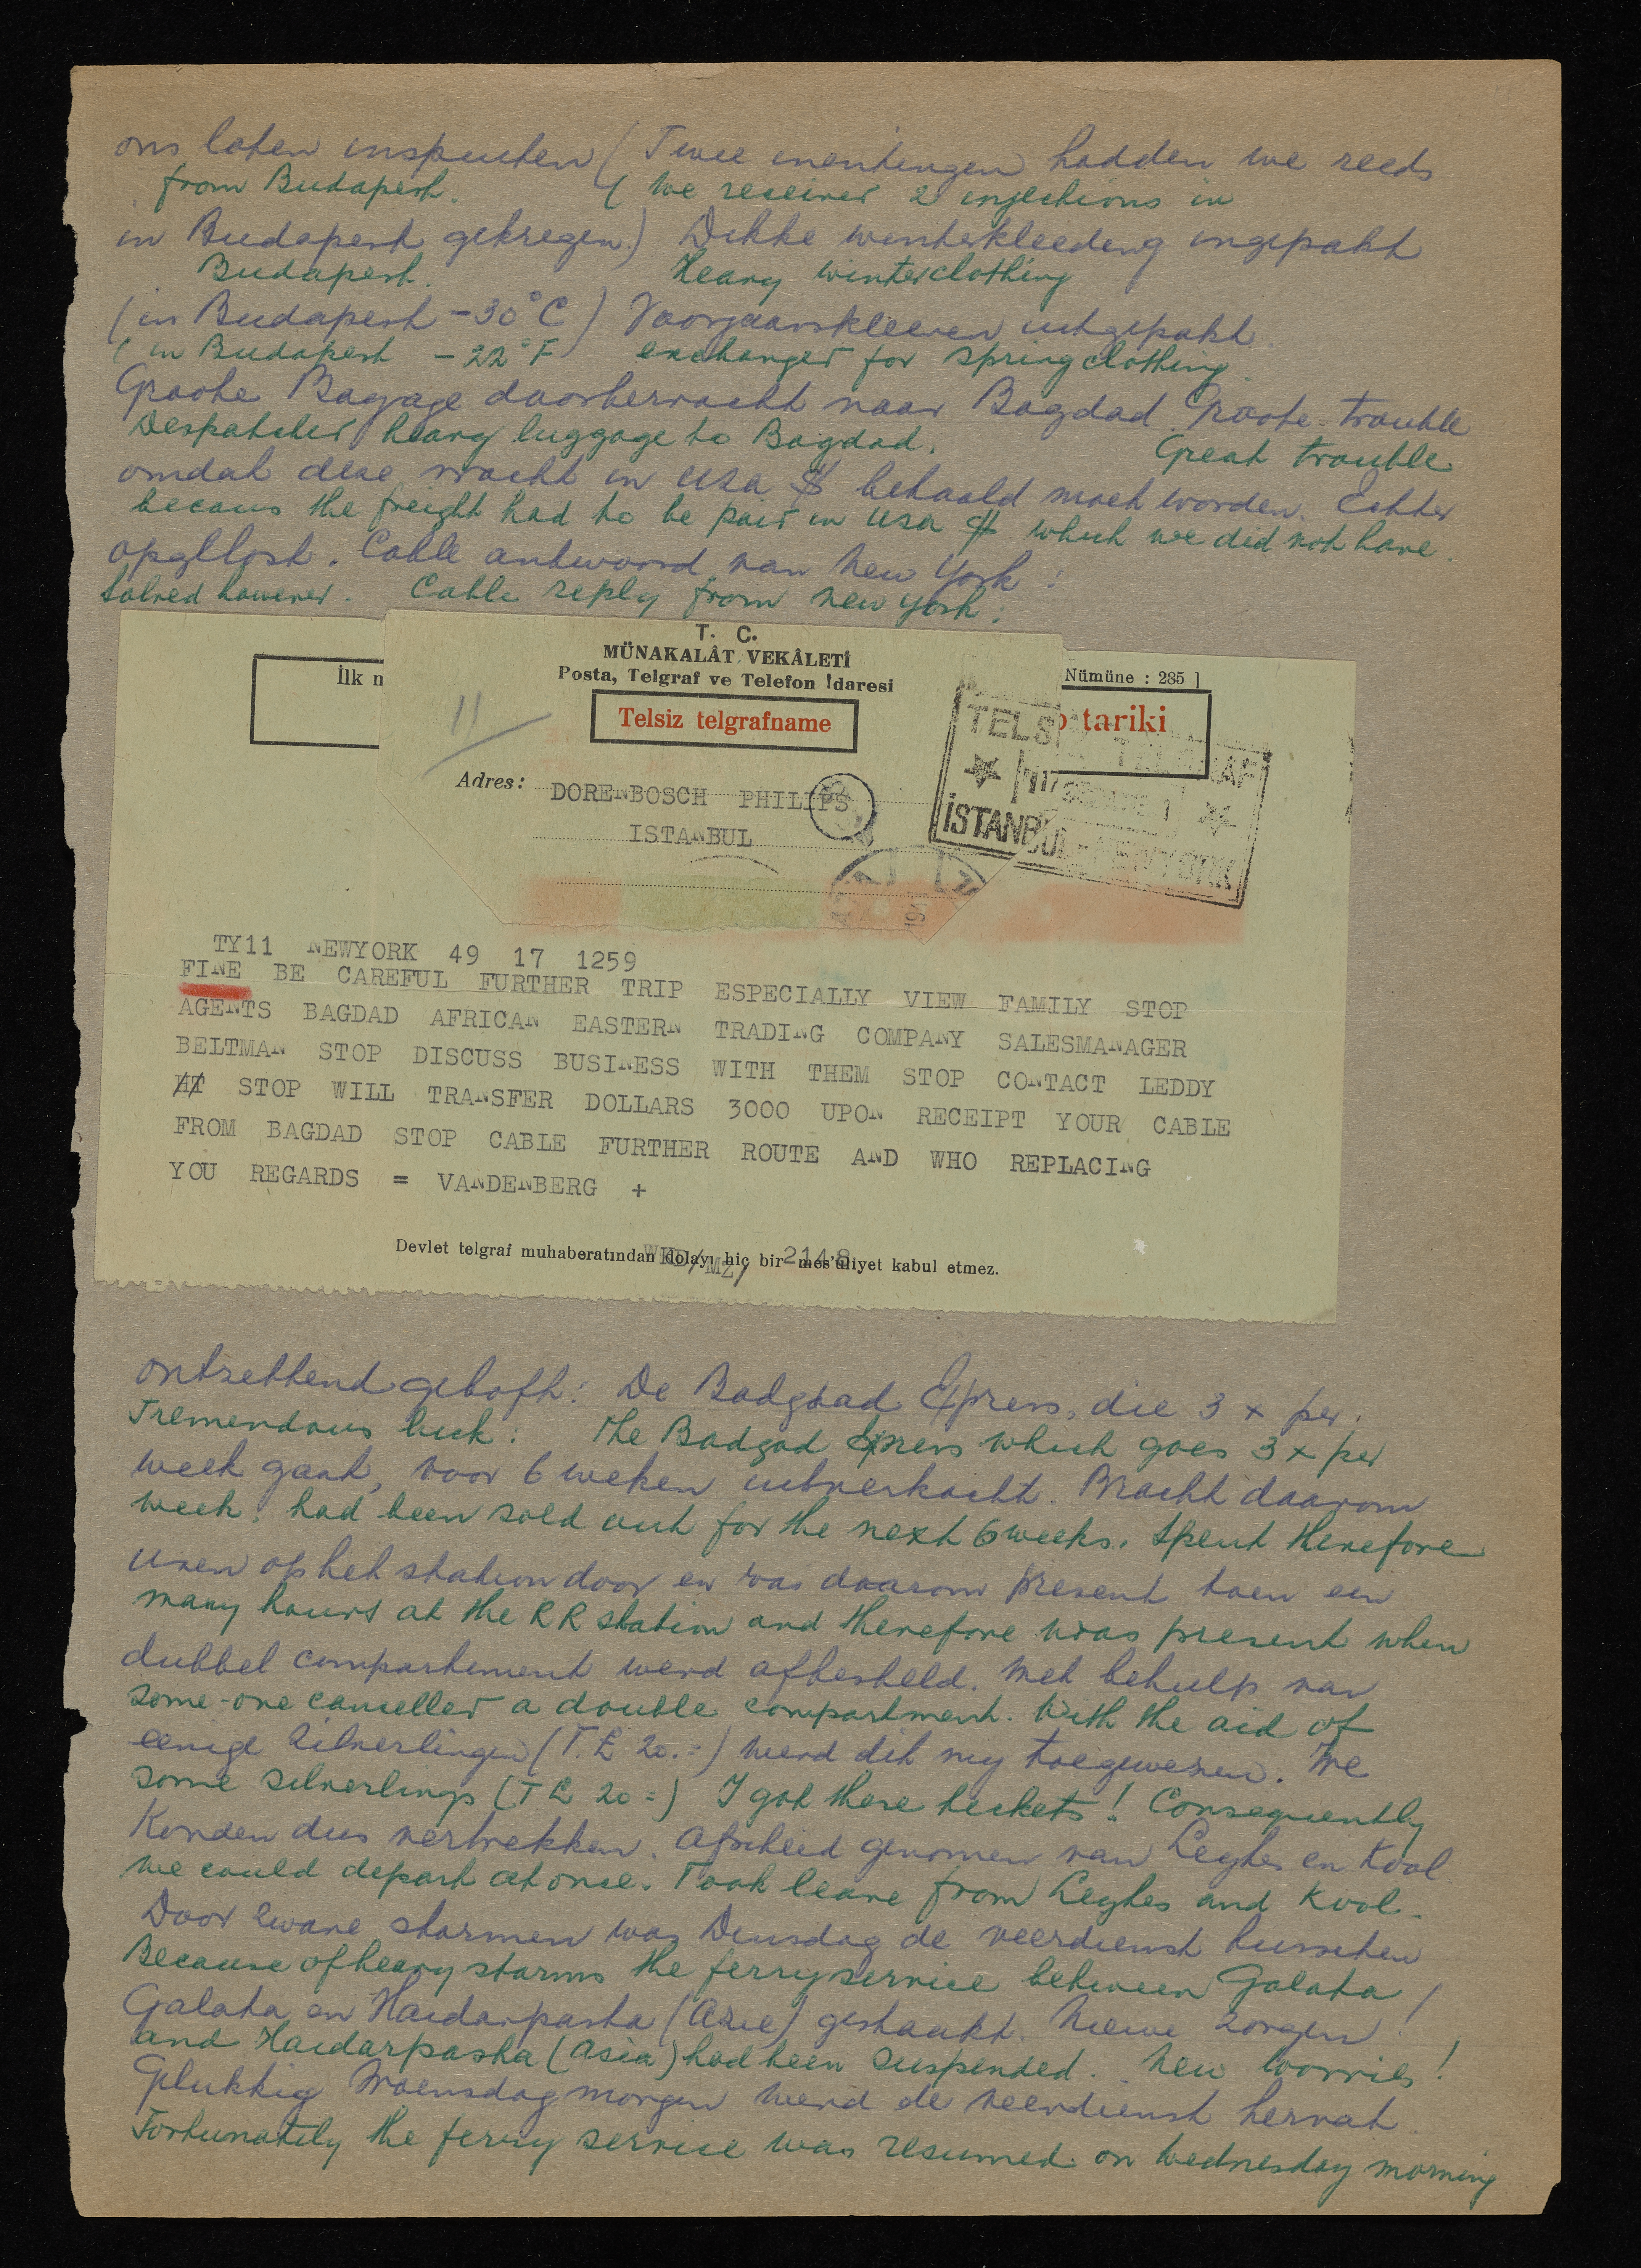 ons laten inspuiten (Twee inentingen hadden we reeds
from Budapest. (We received 2 injections in
in Budapest gekregen.) Dikke winterkleeding ingepakt
Budapest. Heavy winterclothing
(in Budapest -30°C) Voorjaarskleeren uitgepakt.
(in Budapest -22°F) exchanged for springclothing.
Groote Bagage doorbevracht naar Bagdad. Groote trouble
Despatched heavy luggage to Bagdad. Great trouble
omdat deze vracht in USA $ betaald moet worden. Echter
becaus the freight had to be paid in USA $ which we did not have.
opgelost. Cable antwoord van New York:
Solved however. Cable reply from New York:
T. C.
MÜNAKALÂT VEKÂLETİ
Posta, Telgraf ve Telefon İdaresi
İlk n
Nümüne : 285 ]
11
Telsiz telgrafname
tariki
TELS TELGRAF
İSTANBUL-NEWYORK
Adres: DORENBOSCH PHILIPS
ISTANBUL
TY11 NEWYORK 49 17 1259
FINE BE CAREFUL FURTHER TRIP ESPECIALLY VIEW FAMILY STOP
AGENTS BAGDAD AFRICAN EASTERN TRADING COMPANY SALESMANAGER
BELTMAN STOP DISCUSS BUSINESS WITH THEM STOP CONTACT LEDDY
STOP WILL TRANSFER DOLLARS 3000 UPON RECEIPT YOUR CABLE
FROM BAGDAD STOP CABLE FURTHER ROUTE AND WHO REPLACING
YOU REGARDS = VANDENBERG +
Devlet telgraf muhaberatından dolayı hiç bir mes'uliyet kabul etmez.
2148
ontzettend geboft: De Badgdad Expres, die 3 x per
Tremendous luck: The Badgad Expres which goes 3 x per
week gaat, voor 6 weken uitverkocht. Bracht daarom
week, had been sold out for the next 6 weeks. Spent therefore
uren op het station door en was daarom present toen een
many hours at the RR station and therefore was present when
dubbel compartement werd afbesteld. Met behulp van
some-one cancelled a double compartment. With the aid of
eenige zilverlingen (T.£ 20.=) werd dit mij toegewezen. We
some silverlings (T £ 20=) I got these tickets! Consequently
konden dus vertrekken. Afscheid genomen van Leghes en Kool
we could depart at once. Took leave from Leghes and Kool.
Door zware stormen was Dinsdag de veerdienst tusschen
Because of heavy storms the ferryservice between Galata
Galata en Haidarpasha (Azie) gestaakt. Nieuwe zorgen!
and Haidarpasha (Asia) had been suspended. New worries!
Gelukkig Woensdagmorgen werd de veerdienst hervat.
Fortunately the ferry service was resumed on Wednesday morning